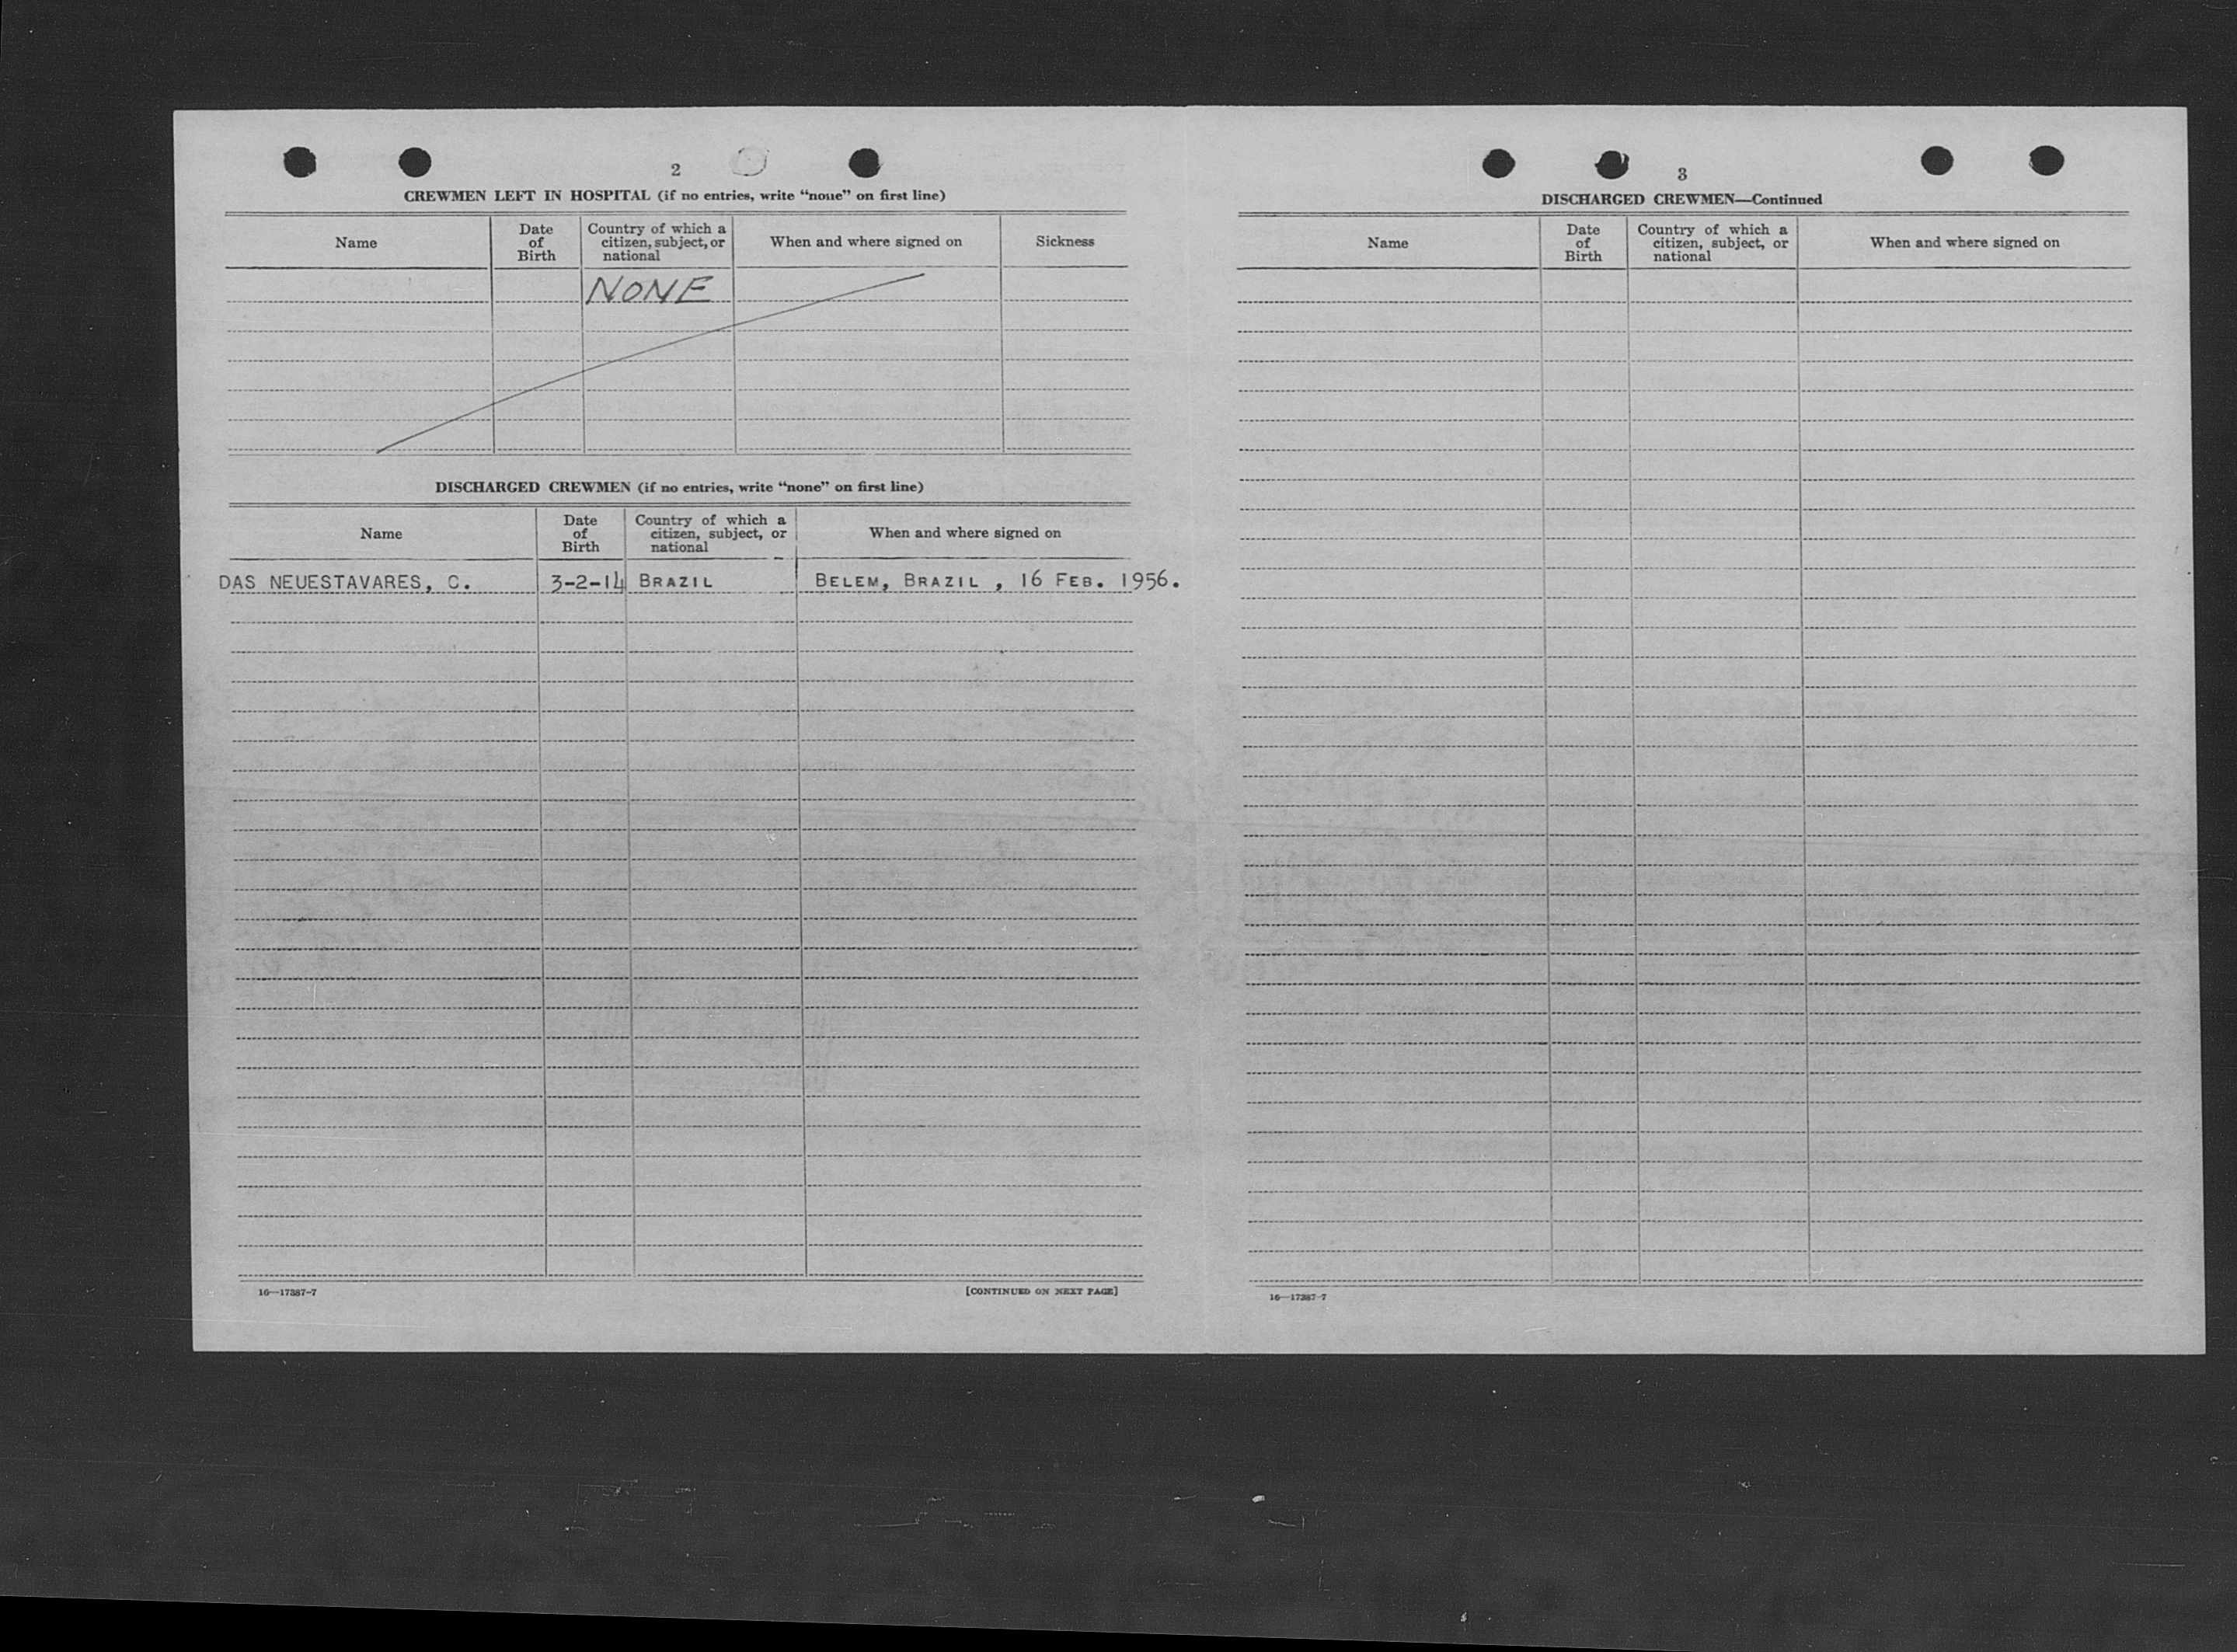 2
CREWMEN LEFT IN HOSPITAL (if no entries, write “none” on first line)
Name
Date of Birth
Country of which a citizen, subject, or national
When and where signed on
Sickness
NONE
DISCHARGED CREWMEN (if no entries, write “none” on first line)
Name
Date of Birth
Country of which a citizen, subject, or national
When and where signed on
DAS NEUESTAVARES, C. 3-2-14 BRAZIL BELEM, BRAZIL , 16 FEB. 1956.
16—17387-7
[CONTINUED ON NEXT PAGE]
3
DISCHARGED CREWMEN—Continued
Name
Date of Birth
Country of which a citizen, subject, or national
When and where signed on
16—17387-7